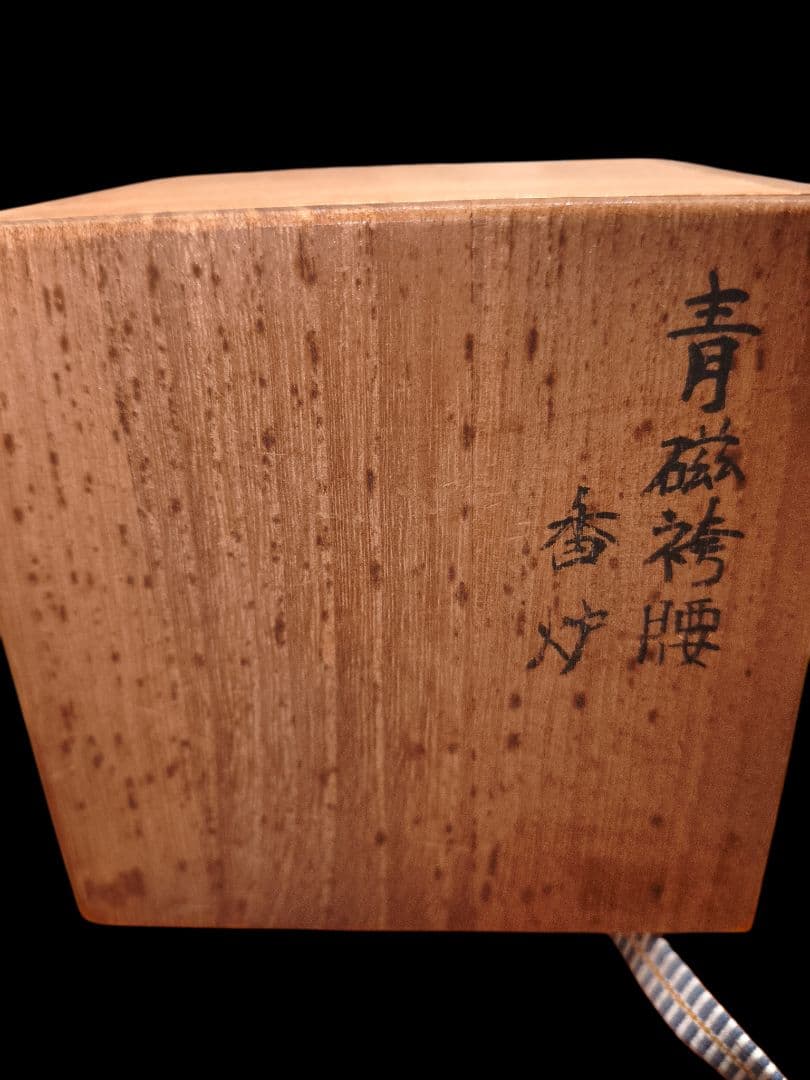 青磁袴腰
香炉